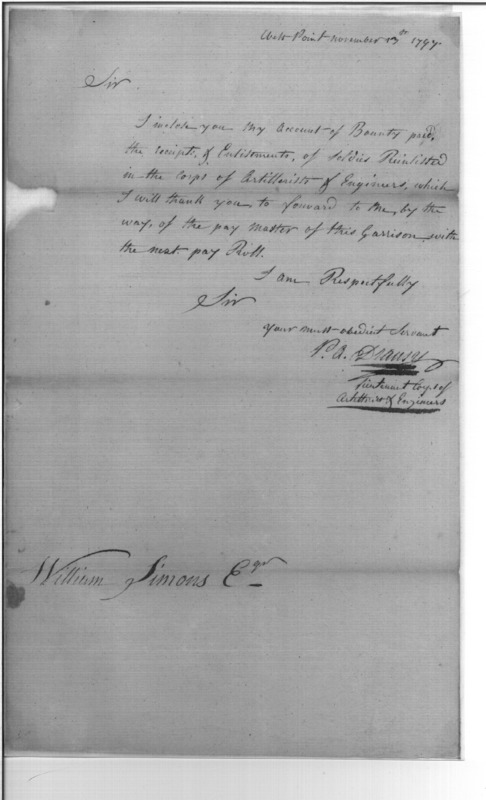 West Point november 13th 1797
Sir
I inclose you My Account of Bounty paid,
the receipts, & Enlistments, of soldies Reinlisted
in the corps of Artillerists & Engineers, which
I will thank you to forward to Me, by the
way, of the pay master of this Garrison with
the next pay Roll.
I am Respectfully
Sir
your most obedient Servant
P. A.
Lieutenant Corps of
Artillerists & Engineers
William Simons Eqr